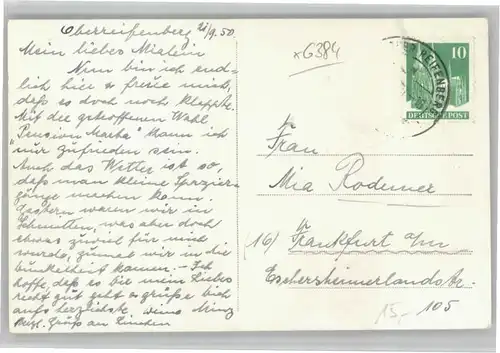 Oberreifenberg 21/9.50
Mein liebes Mialein
Nun bin ich end-
lich hier & freue mich,
daß es doch noch klappte.
Mit der getroffenen Wahl
"Pension Martha" kann ich
nur zufrieden sein.
Auch das Wetter ist so,
daß man kleine Spazier-
gänge machen kann.
Gestern waren wir in
Schmitten, was aber doch
etwas zuviel für mich
wurde, zumal wir in die
Dunkelheit kamen. - Ich
hoffe, daß es Dir mein Liebes
recht gut geht & grüße Dich
aufs herzlichste, Deine
Herzl. Gruß an Linchen
x6384
OBERREIFENBERG
10
DEUTSCHE POST
Frau
Mia Rodemer
(16) Frankfurt a/m
Eschersheimerlandstr.
105
15,-